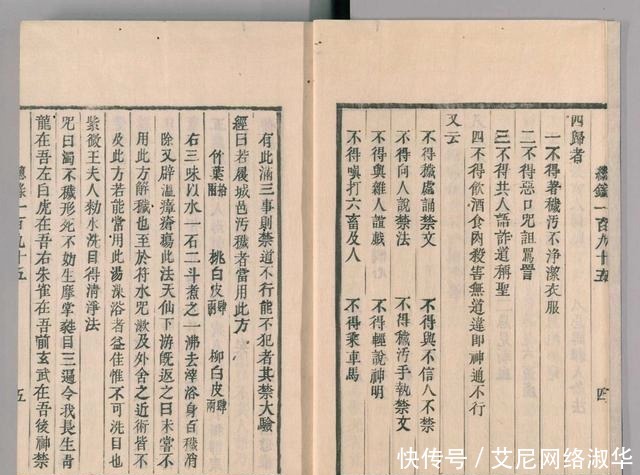 總錄一百九十五 四
四歸者
一不得著穢汚不淨潔衣服
二不得惡口咒詛罵詈
三不得共人語詐道稱聖
四不得飲酒食肉殺害無道違即神道不行
又云
不得穢處誦禁文 不得與不信人不禁
不得向人說禁法 不得穢汚手執禁文
不得與雜人諠戲 不得輕說神明
不得嗔打六畜及人 不得乘車馬
有此滿三事則禁道不行能不犯者其禁大驗
經曰若履城邑汚穢者當用此方
竹葉十兩 桃白皮四兩 柳白皮四兩
右三味以水一石二斗煮之一沸去滓浴身百穢消
除又辟溫瘴瘡瘍此法天仙下游旣返之日未嘗不
用此方解穢也至於符水咒漱及外舍之近術皆不
及此方若能常用此湯澡浴者益佳惟不可洗目也
紫微王夫人勑水洗目得清淨法
咒曰濁不穢形死不妨生摩掌目三遍令我長生青
龍在吾左白虎在吾右朱雀在吾前玄武在吾後神禁
總錄一百九十五 五
快传号/艾尼网络淑华